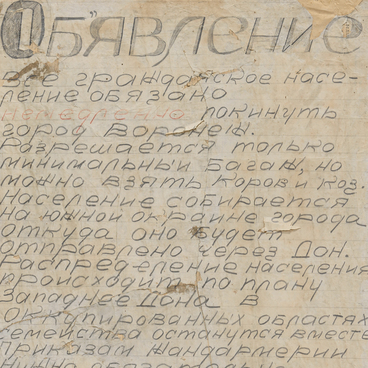 Объявление
Все гражданское насе-
ление обязано
немедленно покинуть
город Воронеж.
Разрешается только
минимальный багаж, но
можно взять Коров и Коз.
Население собирается
на южной окраине города
откуда оно будет
отправлено через Дон.
Распределение населения
происходит по плану
Западнее Дона в
оккупированных областях
семейства останутся вместе
приказам жандармерии